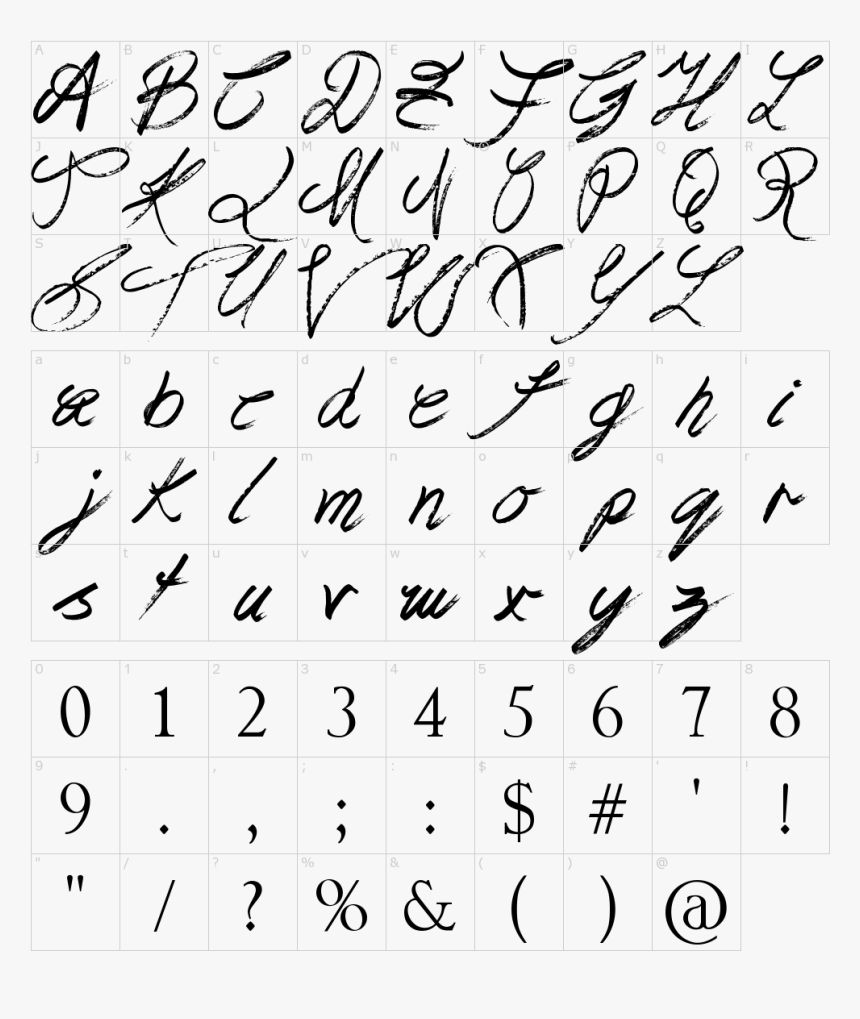 A B C D E F G H I
A B C D E F G H I
J K L M N O P Q R
J K L M N O P Q R
S T U V W X Y Z
S T U V W X Y Z
a b c d e f g h i
a b c d e f g h i
j k l m n o p q r
j k l m n o p q r
s t u v w x y z
s t u v w x y z
0 1 2 3 4 5 6 7 8
0 1 2 3 4 5 6 7 8
9 . , ; : $ # ' !
9 . , ; : $ # ' !
" / ? % & ( ) @
" / ? % & ( ) @